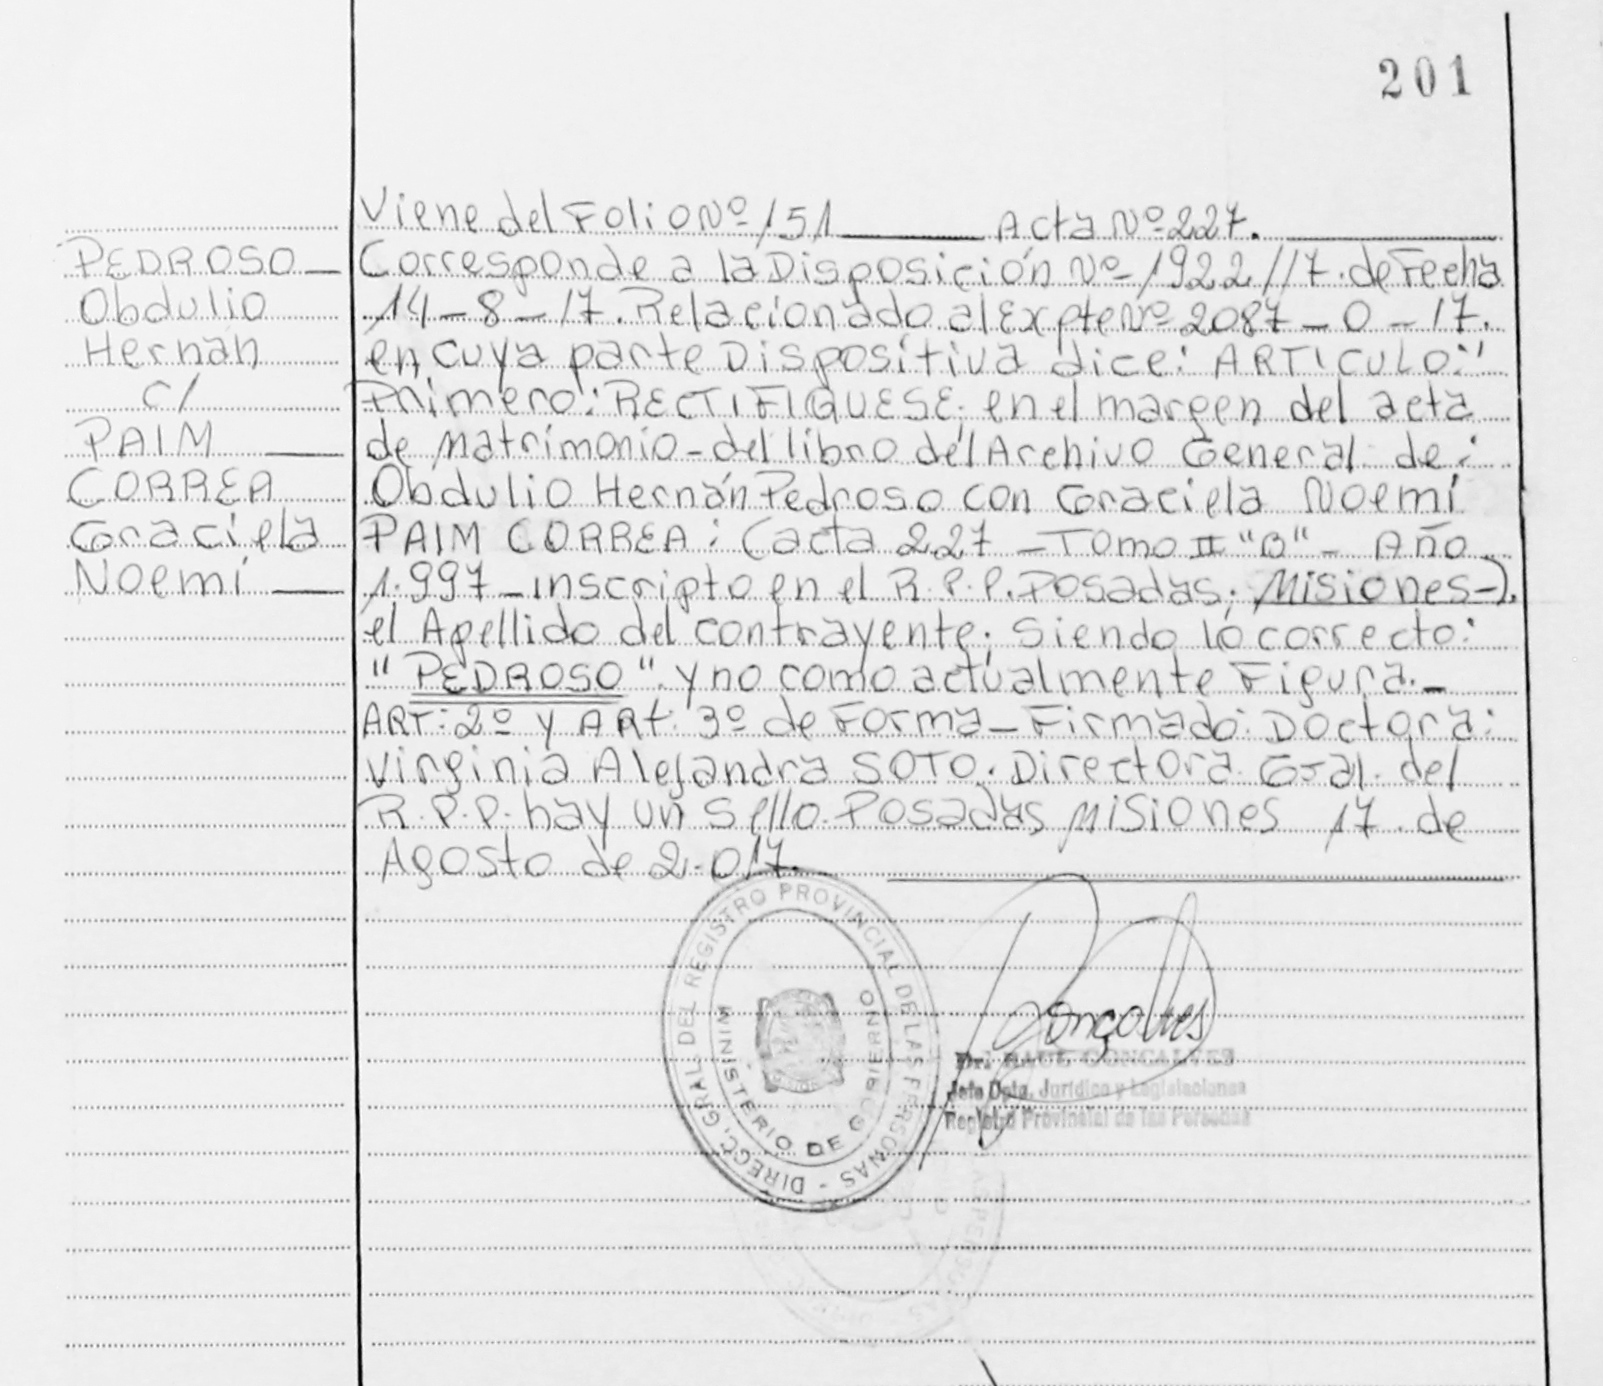 201
Viene del Folio Nº 151 Acta Nº 227.
PEDROSO
Obdulio
Hernán
c/
PAIM
CORREA
Graciela
Noemí
Corresponde a la Disposición Nº 1922/17. de Fecha
14-8-17. Relacionado al Expte Nº 2087-0-17.
en cuya parte Dispositiva dice: ARTICULO:"
Primero: RECTIFIQUESE; en el margen del acta
de Matrimonio-del libro del Archivo General de:
Obdulio Hernán Pedroso con Graciela Noemí
PAIM CORREA: (acta 227 - Tomo II "B" - Año
1.997 - inscripto en el R.P.P. Posadas; Misiones-).
el Apellido del contrayente; siendo lo correcto:
"PEDROSO". y no como actualmente Figura.-
ART: 2º y ARt: 3º de Forma-Firmado: Doctora:
Virginia Alejandra SOTO. Directora Gral. del
R.P.P. hay un sello. Posadas Misiones 17. de
Agosto de 2.017.
DIRECC. GRAL. DEL REGISTRO PROVINCIAL DE LAS PERSONAS -
MINISTERIO DE GOBIERNO
Gonçalves
Dr. RAUL GONCALVES
Jefe Dpto. Jurídico y Legislaciones
Registro Provincial de las Personas